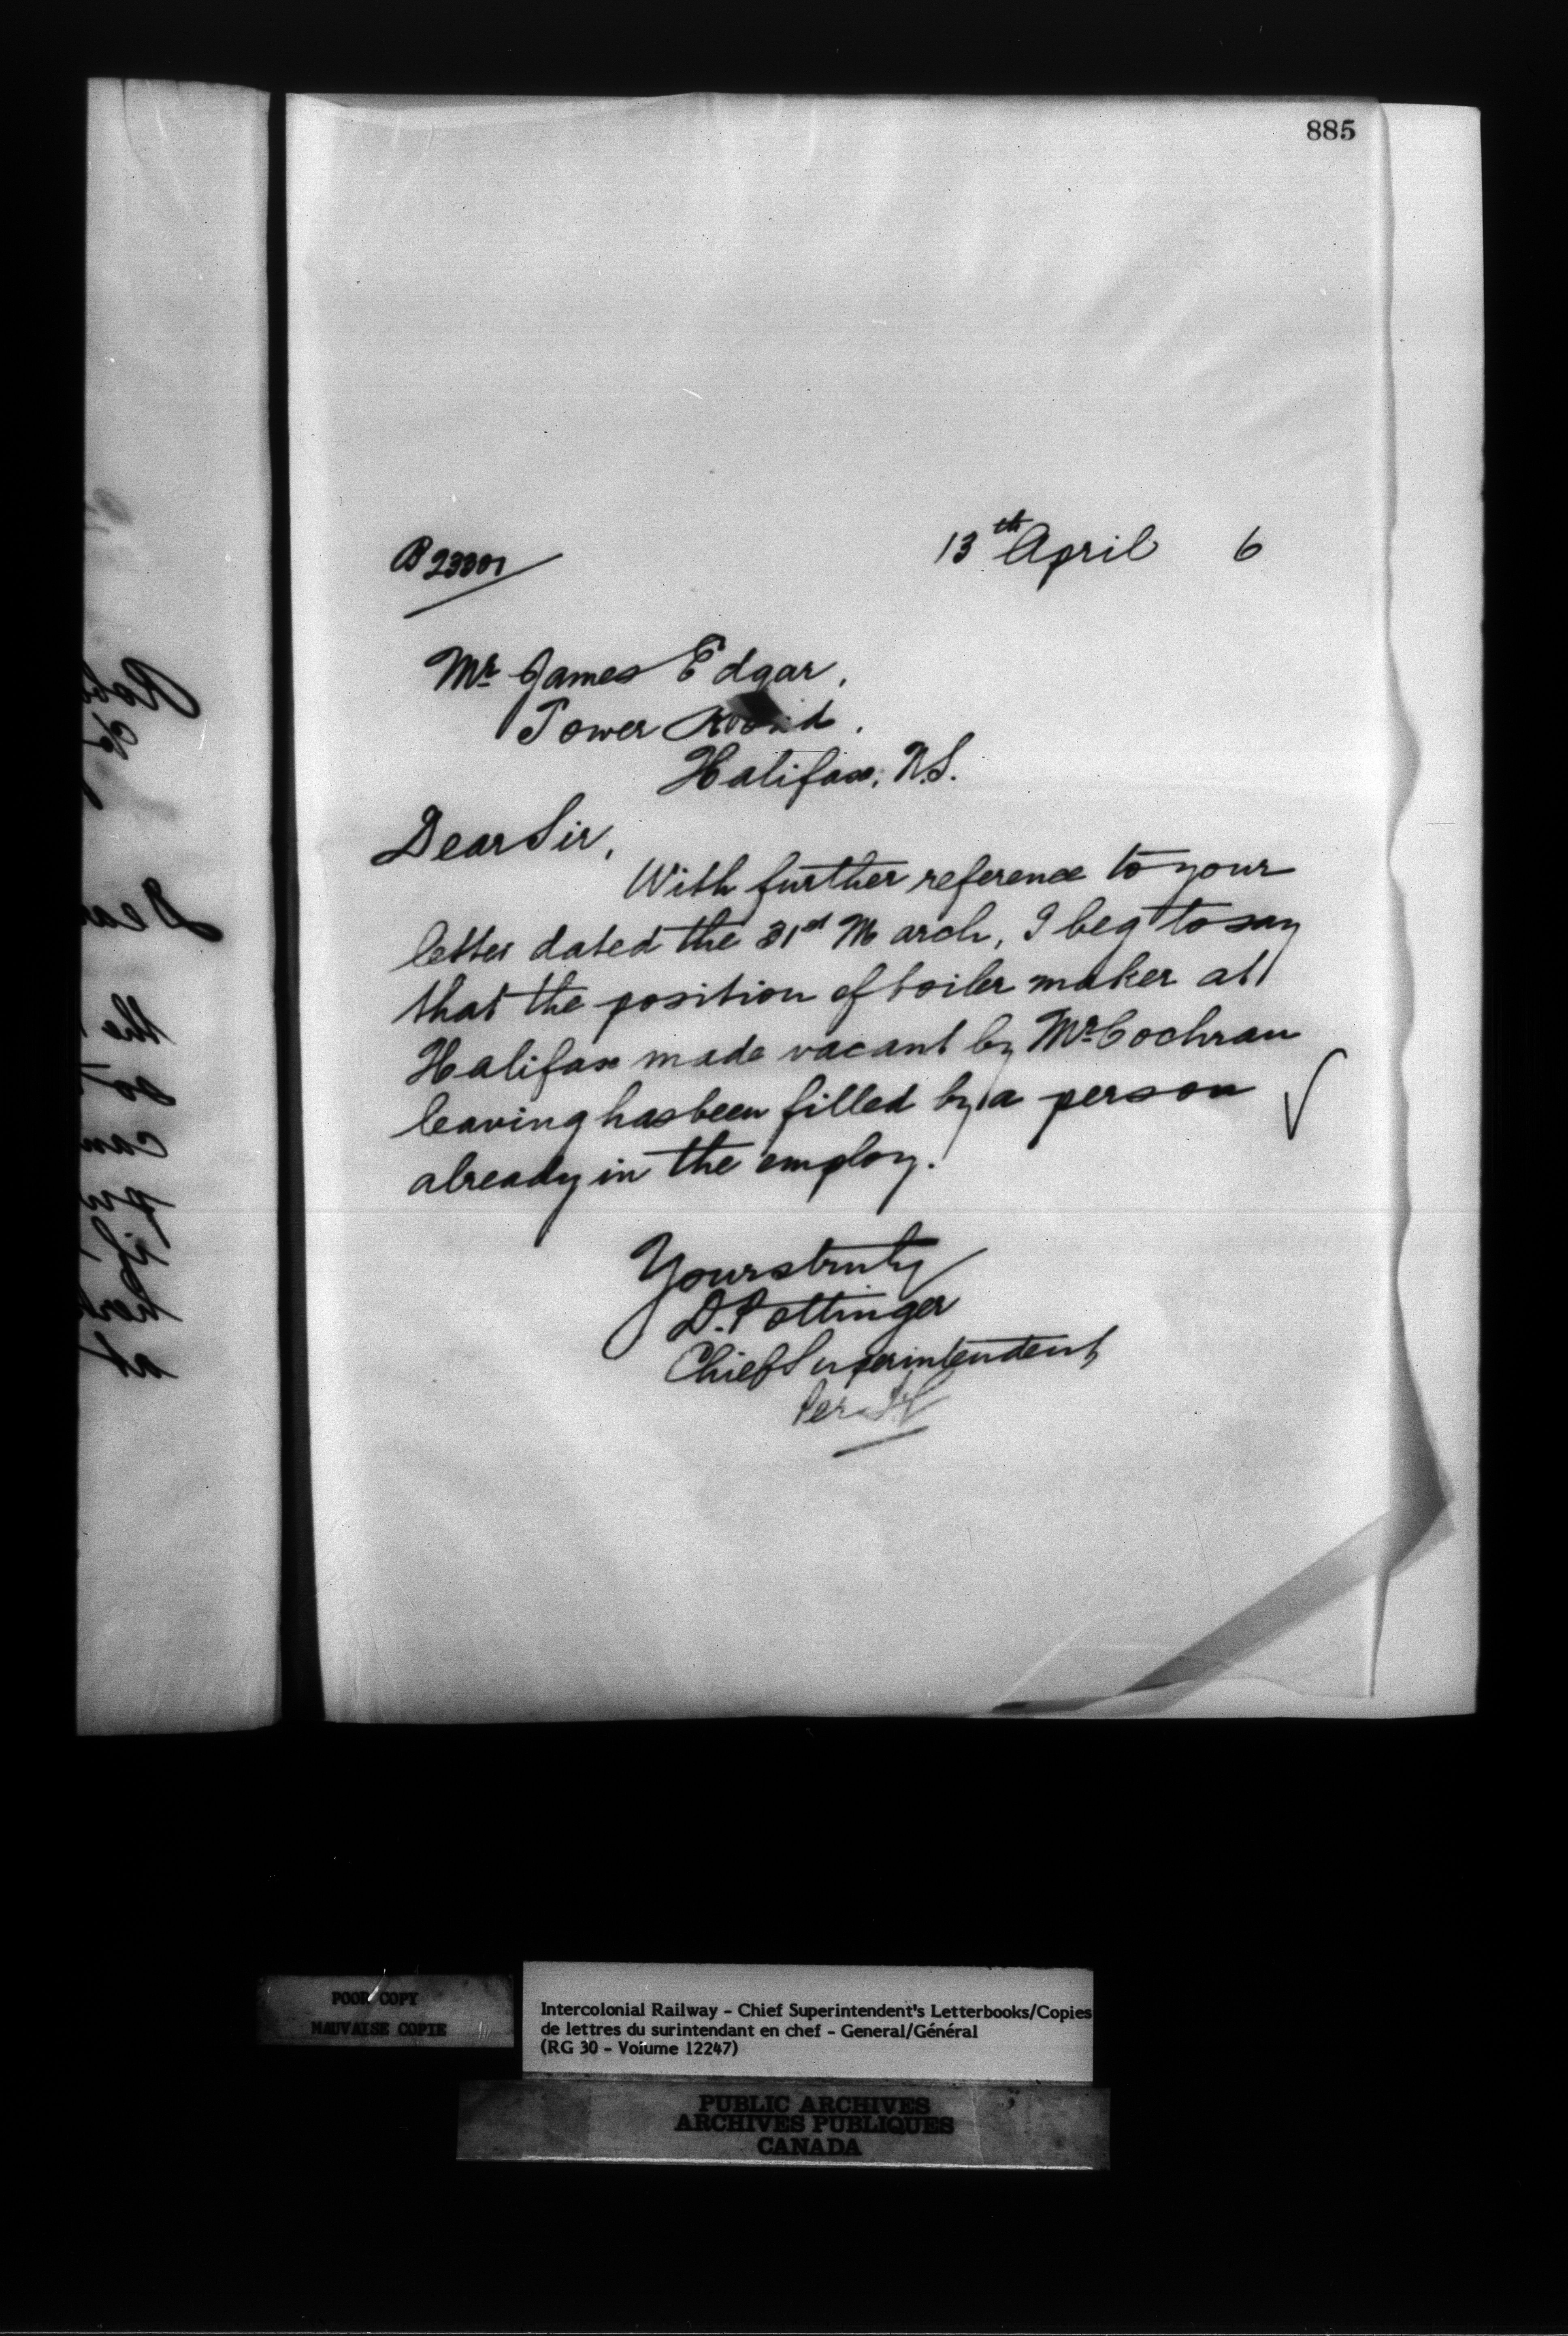 885
13th April 6
Mr James Edgar,
Tower Road,
Halifax, N.S.
Dear Sir,
With further reference to your
letter dated the 31st March, I beg to say
that the position of boiler maker at
Halifax made vacant by Mr Cochran
leaving has been filled by a person
already in the employ.
Yours truly
D. Pottinger
Chief Superintendent
Per
POOR COPY
MAUVAISE COPIE
Intercolonial Railway - Chief Superintendent's Letterbooks/Copies
de lettres du surintendant en chef - General/Général
(RG 30 - Volume 12247)
PUBLIC ARCHIVES
ARCHIVES PUBLIQUES
CANADA